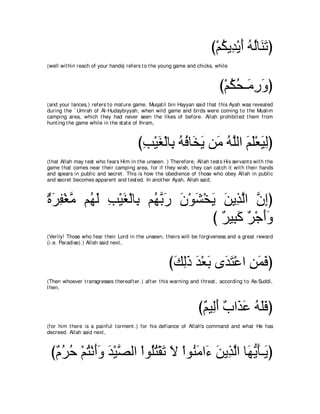 (تَنَالُهُ أَيْدِيكُمْ)
(well within reach of your hands) refers to the young game and chicks, while
(وَرِمَـحُكُمْ)
(and your lances,) refers to mature game. Muqatil bin Hayyan said that this Ayah was revealed
during the ` Umrah of Al-Hudaybiyyah, when wild game and birds were coming to the Muslim
camping area, which they had never seen the likes of before. Allah prohibited them from
hunting the game while in the state of Ihram,
(لِيَعْلَمَ اللَّهُ مَن يَخَافُهُ بِالْغَيْبِ)
(that Allah may test who fears Him in the unseen. ) Therefore, Allah tests His servants with the
game that comes near their camping area, for if they wish, they can catch it with their hands
and spears in public and secret. This is how the obedience of those who obey Allah in public
and secret becomes apparent and tested. In another Ayah, Allah said;
(إِنَّ الَّذِينَ يَخْشَوْنَ رَبَّهُم بِالْغَيْبِ لَهُم مَّغْفِرَةٌ
وَأَجْرٌ كَبِيرٌ )
(Verily! Those who fear their Lord in the unseen, theirs will be forgiveness and a great reward
(i.e. Paradise).) Allah said next,
(فَمَنِ اعْتَدَى بَعْدَ ذَلِكَ)
(Then whoever transgresses thereafter.) after this warning and threat, according to As-Suddi,
then,
(فَلَهُ عَذَابٌ أَلِيمٌ)
(for him there is a painful torment.) for his defiance of Allah's command and what He has
decreed. Allah said next,
(يَـأَيُّهَا الَّذِينَ ءَامَنُواْ لاَ تَقْتُلُواْ الصَّيْدَ وَأَنْتُمْ حُرُمٌ)